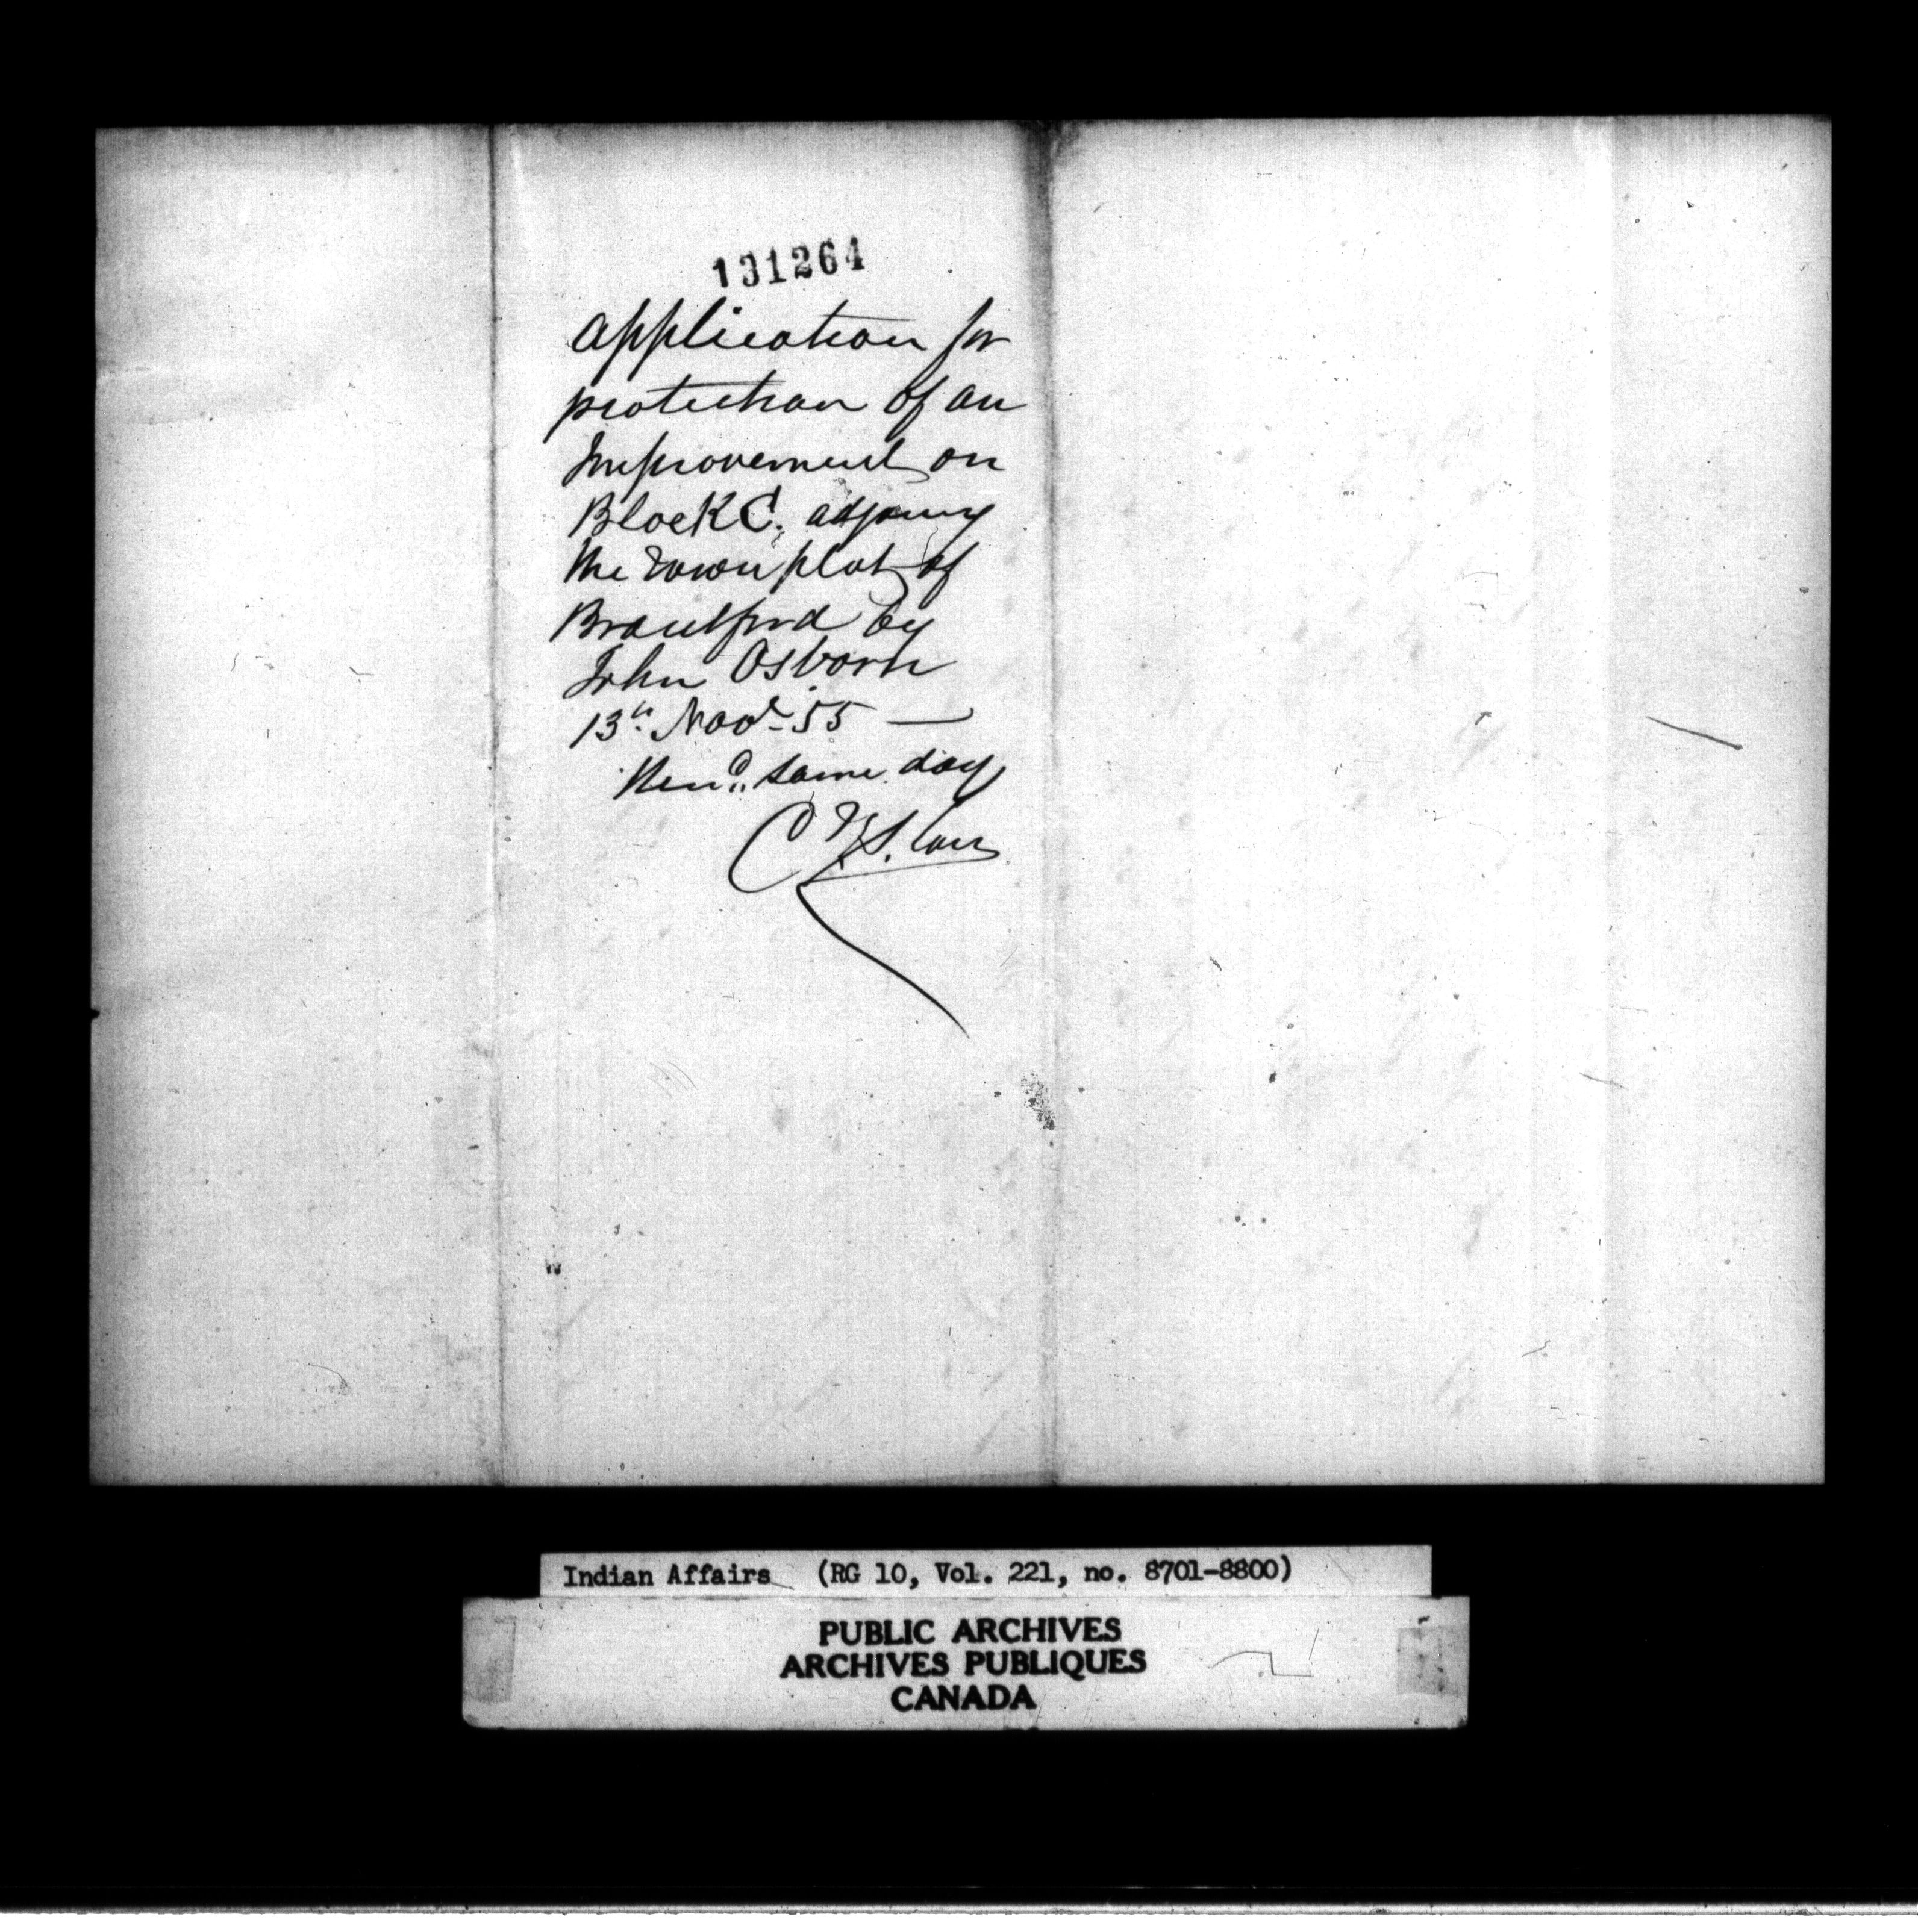 131264
Application for
protection of an
Improvement on
Block C. adjoing
the Town plot of
Brantford by
John Osborn
13th Novr 55 —
same day
Indian Affairs (RG 10, Vol. 221, no. 8701-8800)
PUBLIC ARCHIVES
ARCHIVES PUBLIQUES
CANADA